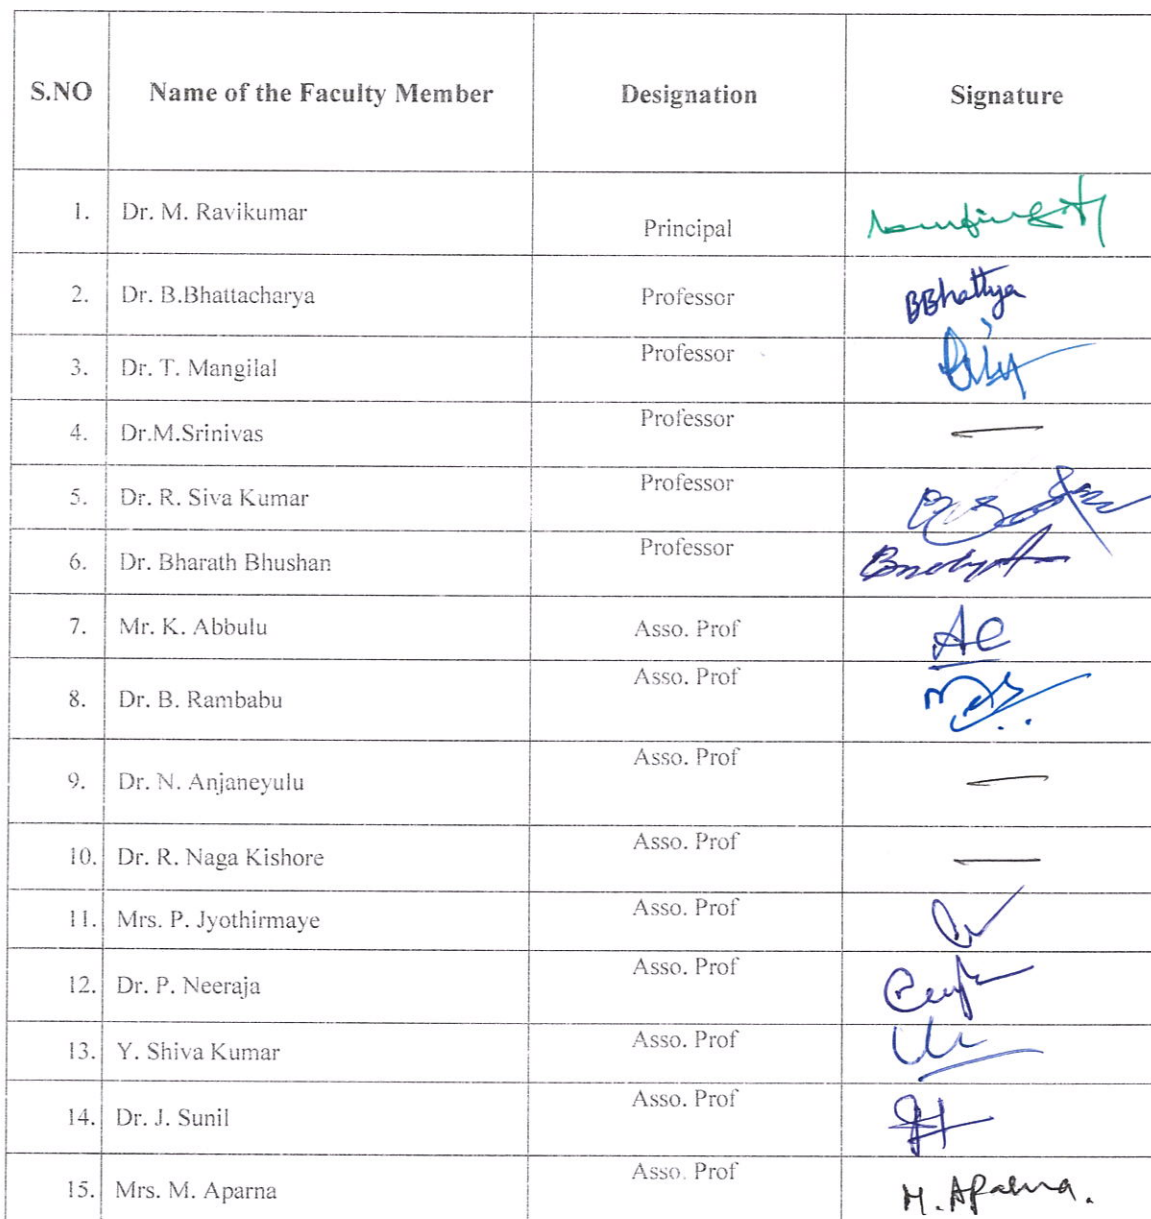 S.NO Name of the Faculty Member Designation Signature
1. Dr. M. Ravikumar Principal
2. Dr. B.Bhattacharya Professor BBhattya
3. Dr. T. Mangilal Professor
4. Dr.M.Srinivas Professor —
5. Dr. R. Siva Kumar Professor
6. Dr. Bharath Bhushan Professor
7. Mr. K. Abbulu Asso. Prof
8. Dr. B. Rambabu Asso. Prof
9. Dr. N. Anjaneyulu Asso. Prof —
10. Dr. R. Naga Kishore Asso. Prof —
11. Mrs. P. Jyothirmaye Asso. Prof
12. Dr. P. Neeraja Asso. Prof
13. Y. Shiva Kumar Asso. Prof
14. Dr. J. Sunil Asso. Prof
15. Mrs. M. Aparna Asso. Prof M. Aparna.